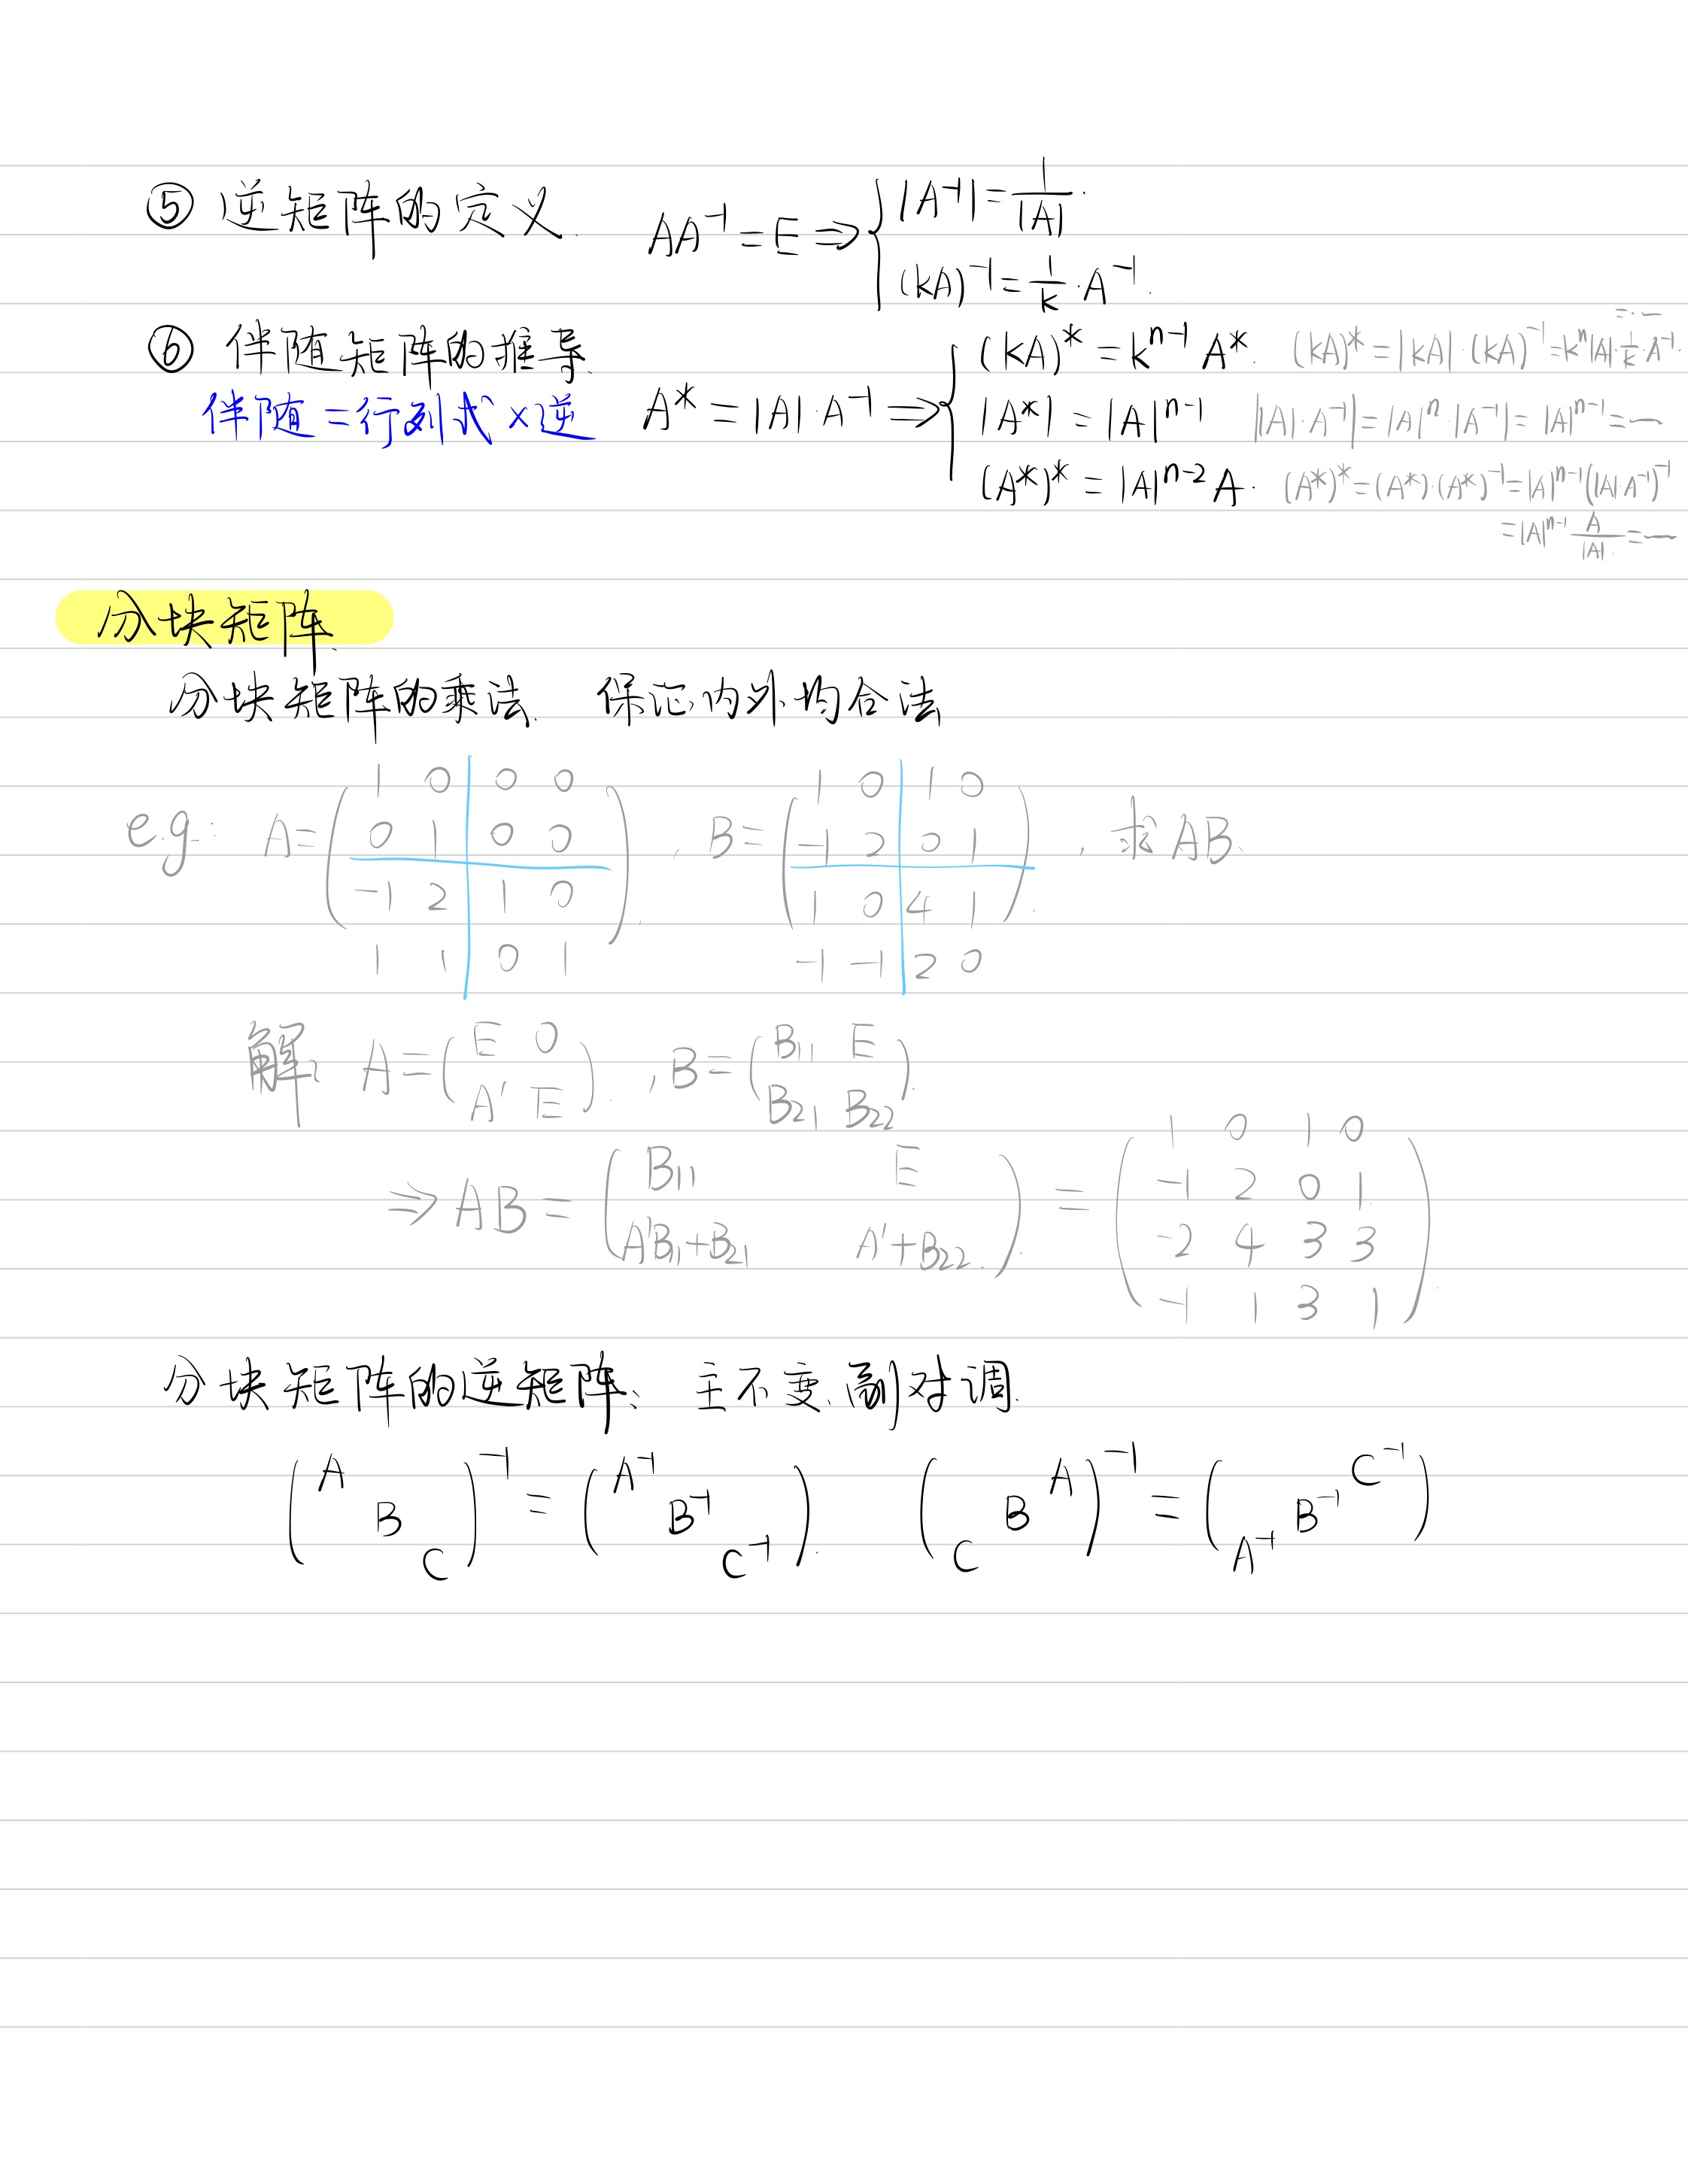 ⑤ 逆矩阵的定义. AA⁻¹ = E ⇒ { |A⁻¹| = 1/|A|.
(kA)⁻¹ = 1/k · A⁻¹.
⑥ 伴随矩阵的推导.
伴随 = 行列式 × 逆 A* = |A| · A⁻¹ ⇒ {
(kA)* = kⁿ⁻¹ A*. (kA)* = |kA| · (kA)⁻¹ = kⁿ|A| · 1/k · A⁻¹. = …
|A*| = |A|ⁿ⁻¹ ||A| · A⁻¹| = |A|ⁿ · |A⁻¹| = |A|ⁿ⁻¹ = …
(A*)* = |A|ⁿ⁻² A. (A*)* = (A*) · (A*)⁻¹ = |A|ⁿ⁻¹ (|A| · A⁻¹)⁻¹
= |A|ⁿ⁻¹ A/|A| = …
分块矩阵.
分块矩阵的乘法. 保证内外均合法
e.g.: A = ( 1 0 0 0
0 1 0 0
-1 2 1 0
1 1 0 1 ), B = ( 1 0 1 0
-1 2 0 1
1 0 4 1
-1 -1 2 0 ), 求 AB.
解: A = ( E 0
A' E ), B = ( B₁₁ E
B₂₁ B₂₂ ).
⇒ AB = ( B₁₁ E
A'B₁₁+B₂₁ A'+B₂₂ ) = ( 1 0 1 0
-1 2 0 1
-2 4 3 3
-1 1 3 1 ).
分块矩阵的逆矩阵: 主不变、副对调.
( A
B
C )⁻¹ = ( A⁻¹
B⁻¹
C⁻¹ ).
( A
B
C )⁻¹ = ( C⁻¹
B⁻¹
A⁻¹ )